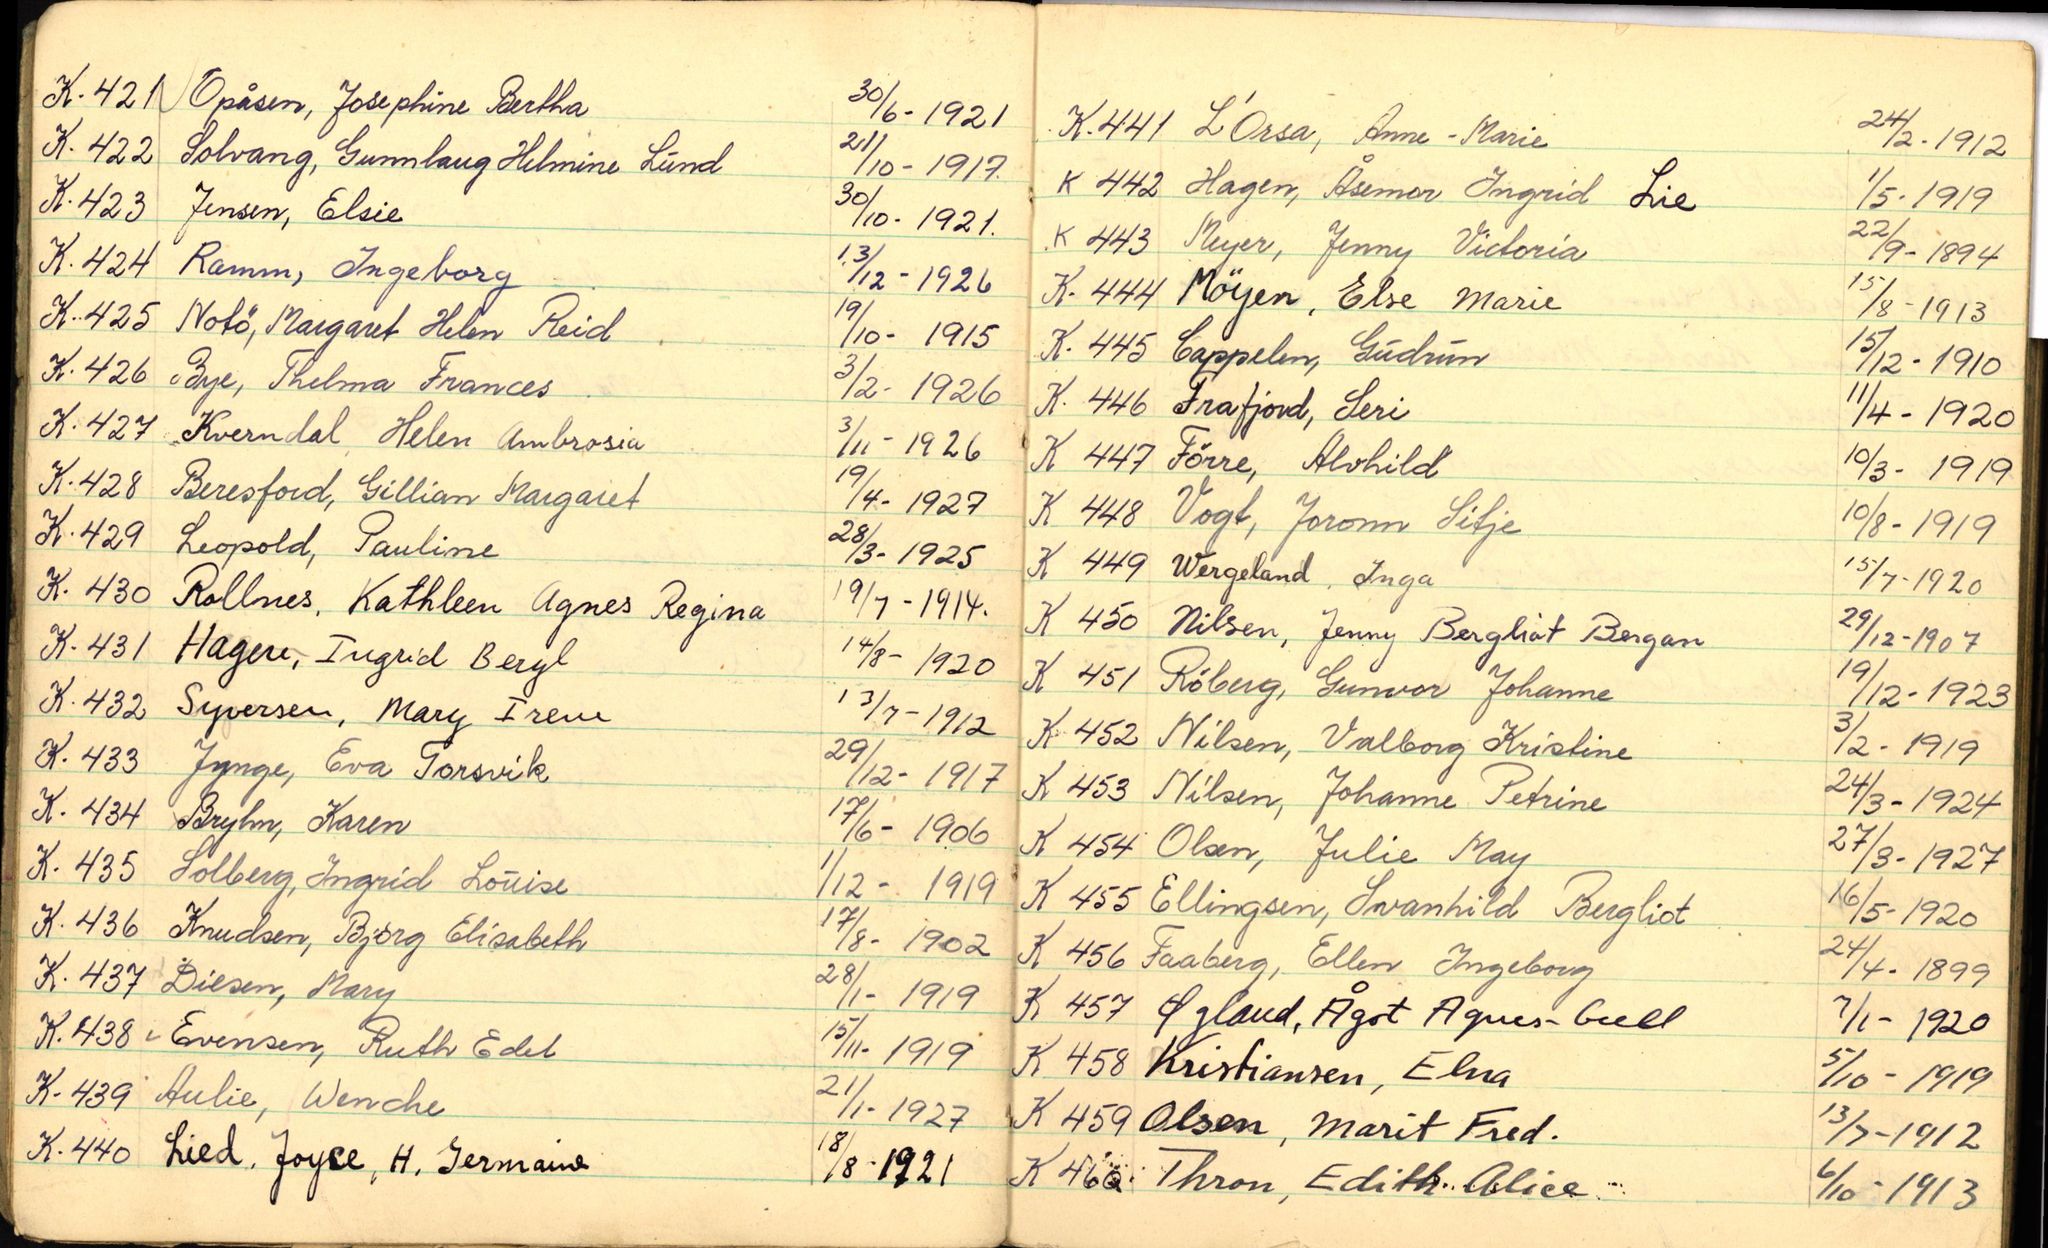 K. 421 Opåsen, Josephine Bertha 30/6 - 1921
K. 422 Solvang, Gunnlaug Helmine Lund 21/10 - 1917.
K. 423 Jensen, Elsie 30/10 - 1921.
K. 424 Ramm, Ingeborg 13/12 - 1926
K. 425 Notö, Margaret Helen Reid 19/10 - 1915
K. 426 Bye, Thelma Frances 3/2 - 1926
K. 427 Kverndal, Helen Ambrosia 3/11 - 1926
K. 428 Beresford, Gillian Margaret 19/4 - 1927
K. 429 Leopold, Pauline 28/3 - 1925
K. 430 Rollnes, Kathleen Agnes Regina 19/7 - 1914.
K. 431 Hagen, Ingrid Beryl 14/8 - 1920
K. 432 Syversen, Mary Irene 13/7 - 1912
K. 433 Jynge, Eva Torsvik 29/12 - 1917
K. 434 Bryhn, Karen 17/6 - 1906
K. 435 Solberg, Ingrid Louise 1/12 - 1919
K. 436 Knudsen, Björg Elisabeth 17/8 - 1902
K. 437 Diesen, Mary 28/1 - 1919
K. 438 Evensen, Ruth Edel 15/11 - 1919
K. 439 Aulie, Wenche 21/1 - 1927
K. 440 Lied, Joyce, H. Germaine 18/8 - 1921
K. 441 L'Orsa, Anne-Marie 24/2 - 1912
K 442 Hagen, Åsemor Ingrid Lie 1/5 - 1919
K 443 Meyer, Jenny Victoria 22/9 - 1894
K. 444 Möyen, Else Marie 15/8 - 1913
K. 445 Cappelen, Gudrun 15/12 - 1910
K. 446 Frafjord, Seri 11/4 - 1920
K 447 Förre, Alvhild 10/3 - 1919
K 448 Vogt, Joronn Sitje 10/8 - 1919
K 449 Wergeland, Inga 15/7 - 1920
K 450 Nilsen, Jenny Bergliot Bergan 29/12 - 1907
K 451 Röberg, Gunvor Johanne 19/12 - 1923
K 452 Nilsen, Valborg Kristine 3/2 - 1919
K 453 Nilsen, Johanne Petrine 24/3 - 1924
K 454 Olsen, Julie May 27/3 - 1927
K 455 Ellingsen, Svanhild Bergliot 16/5 - 1920
K 456 Faaberg, Ellen Ingeborg 24/4 - 1899
K 457 Øgland, Ågot Agnes 7/1 - 1920
K 458 Kristiansen, Elna 5/10 - 1919
K 459 Olsen, Marit Fred. 13/7 - 1912
K 460 Thron, Edith Alice 6/10 - 1913